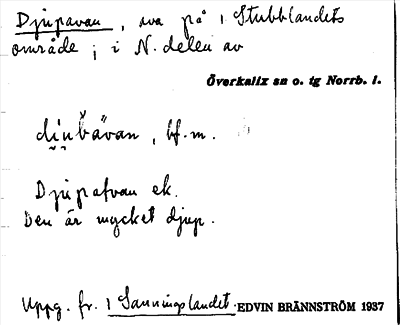 Djupavan, ava på 1 Stubblandets
område i i N. delen av
Överkalix sn o. tg Norrb. l.
bf. m.
Djupafvan ek.
Den är mycket djup.
Uppg. fr. 1 Sanningslandet. EDVIN BRÄNNSTRÖM 1937